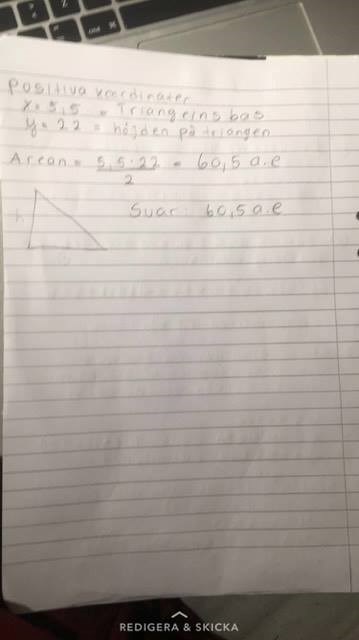 Positiva koordinater
x = 5,5 = Triangelns bas
y = 22 = höjden på triangen
Arean = 5,5 · 22 / 2 = 60,5 a.e
Svar: 60,5 a.e
h
REDIGERA & SKICKA